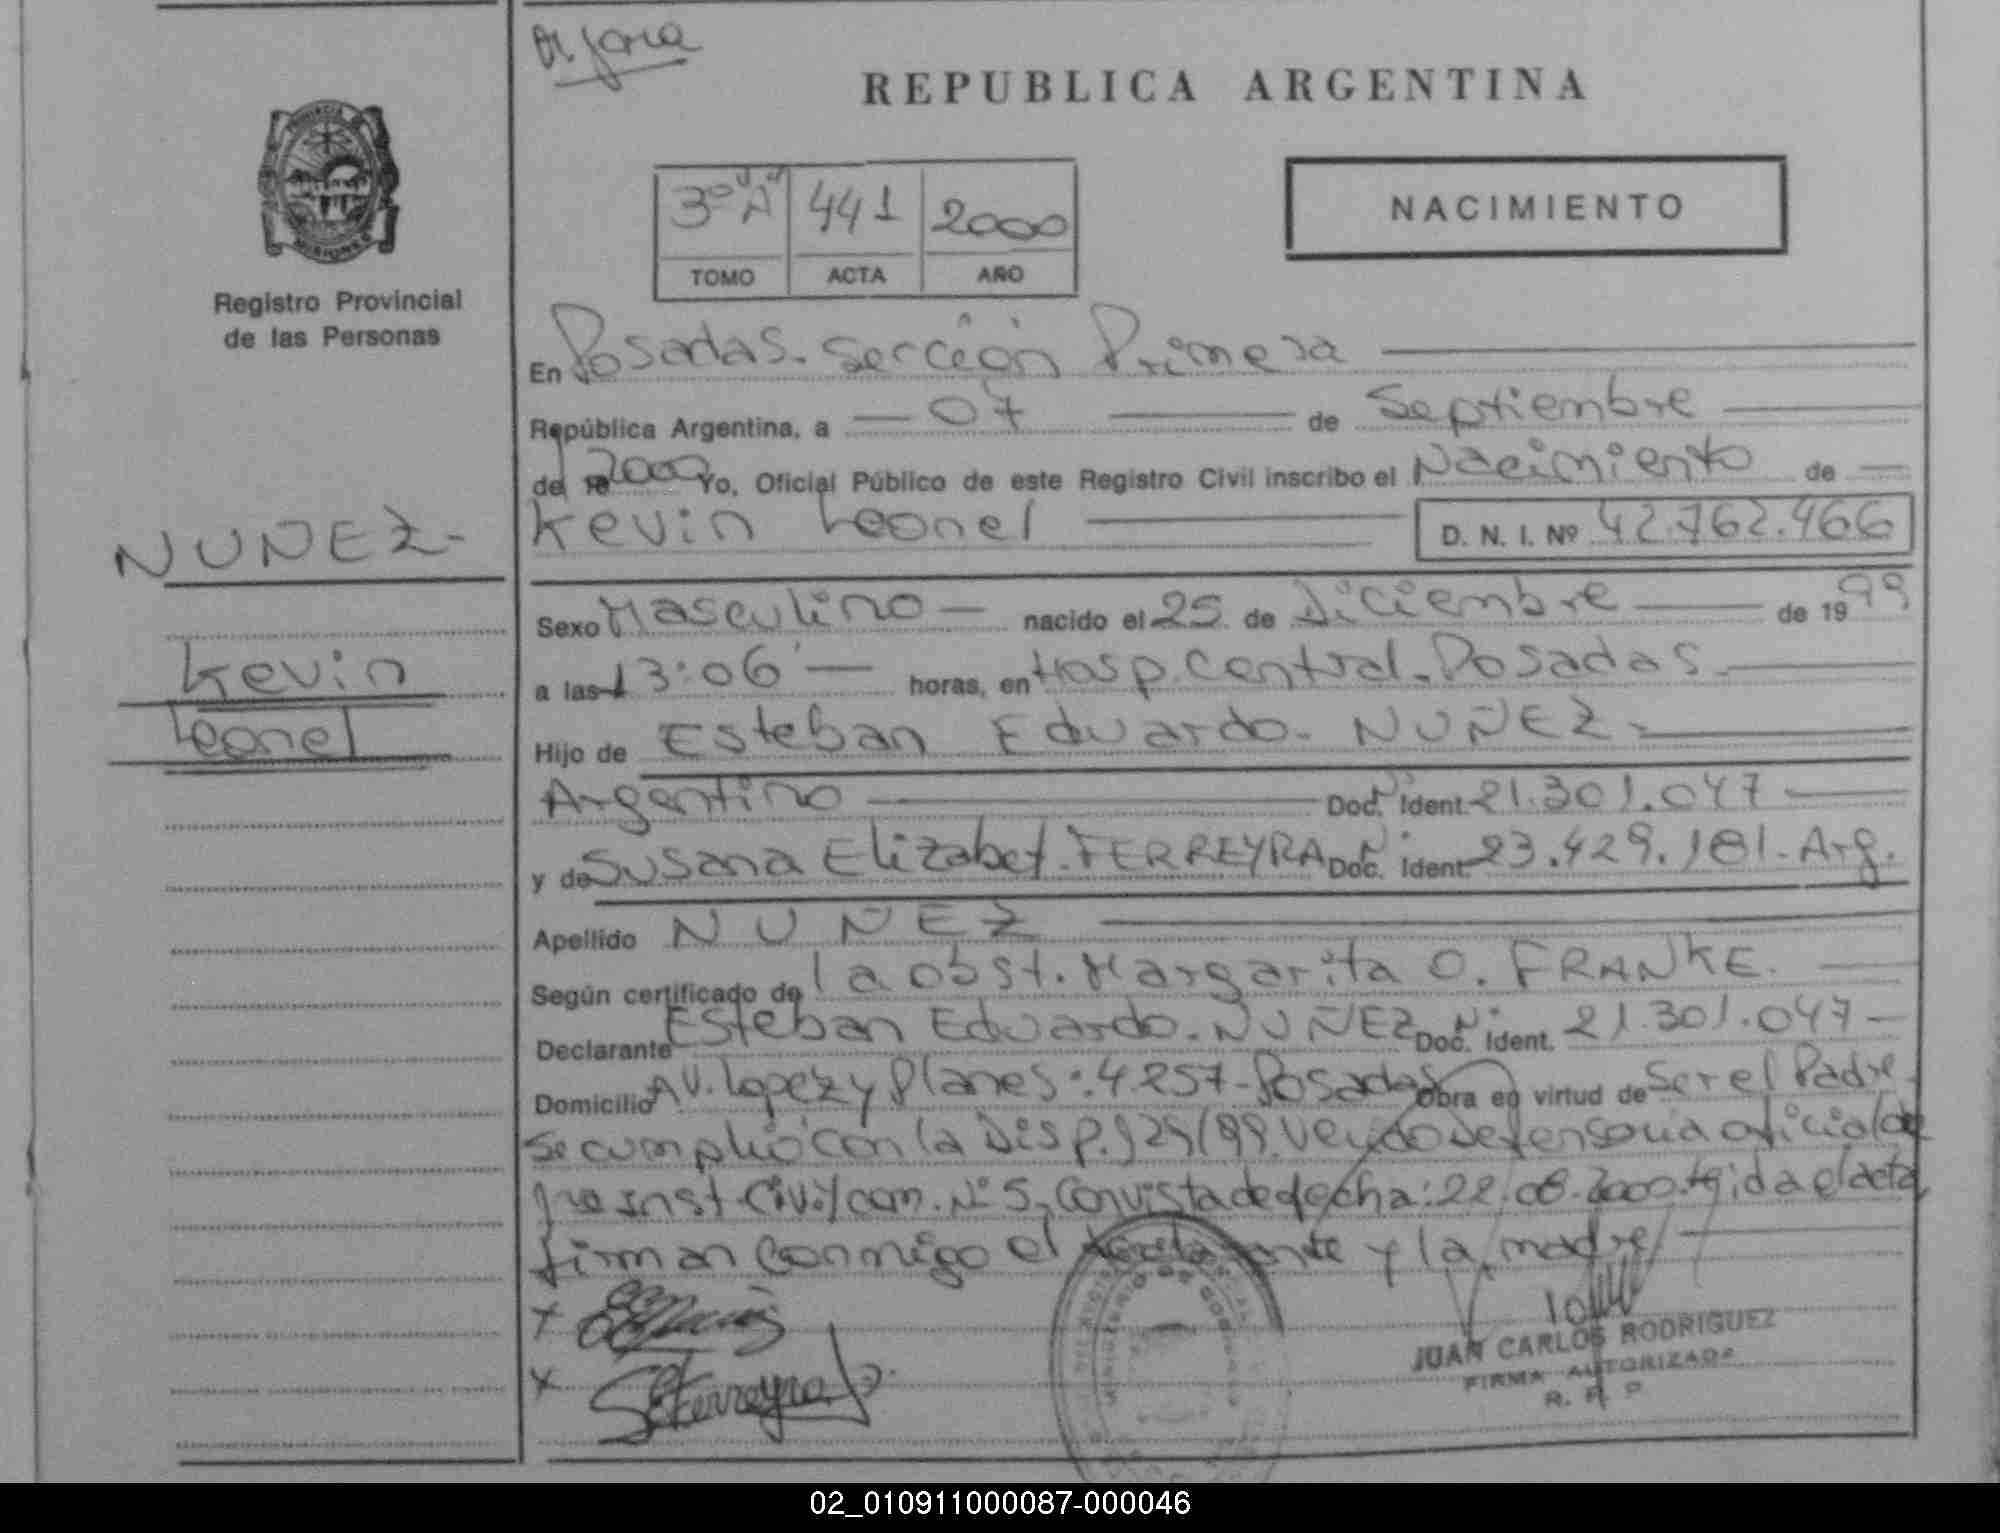 REPUBLICA ARGENTINA
PROVINCIA DE
MISIONES
Registro Provincial
de las Personas
3º "A" 441 2000
TOMO ACTA AÑO
NACIMIENTO
En Posadas. Sección Primera
República Argentina, a 07 de Septiembre
de 19 2000 Yo, Oficial Público de este Registro Civil inscribo el Nacimiento de
Kevin Leonel D. N. I. Nº 42.762.466
NUÑEZ-
Kevin
Leonel
Sexo Masculino nacido el 25 de Diciembre de 1999
a las 13:06' horas, en Hosp. Central. Posadas
Hijo de Esteban Eduardo. NUÑEZ-
Argentino Doc. Ident. 21.301.047
y de Susana Elizabet. FERREYRA Doc. Ident. 23.429.181- Arg.
Apellido NUÑEZ
Según certificado de la obst. Margarita O. FRANKE.
Declarante Esteban Eduardo. NUÑEZ Doc. Ident. 21.301.047-
Domicilio AV. Lopez y Planes: 4257- Posadas Obra en virtud de Ser el Padre.
se cumplió con la Disp. 929/99. Defensoria oficial de
Inst. Civil y com. Nº 5, Con vista de fecha: 22.08.2000. el acta
firman conmigo el declarante y la madre
x
x SEFerreyra
MINISTERIO DE GOBIERNO
JUAN CARLOS RODRIGUEZ
FIRMA AUTORIZADA
R. P. P
02_010911000087-000046